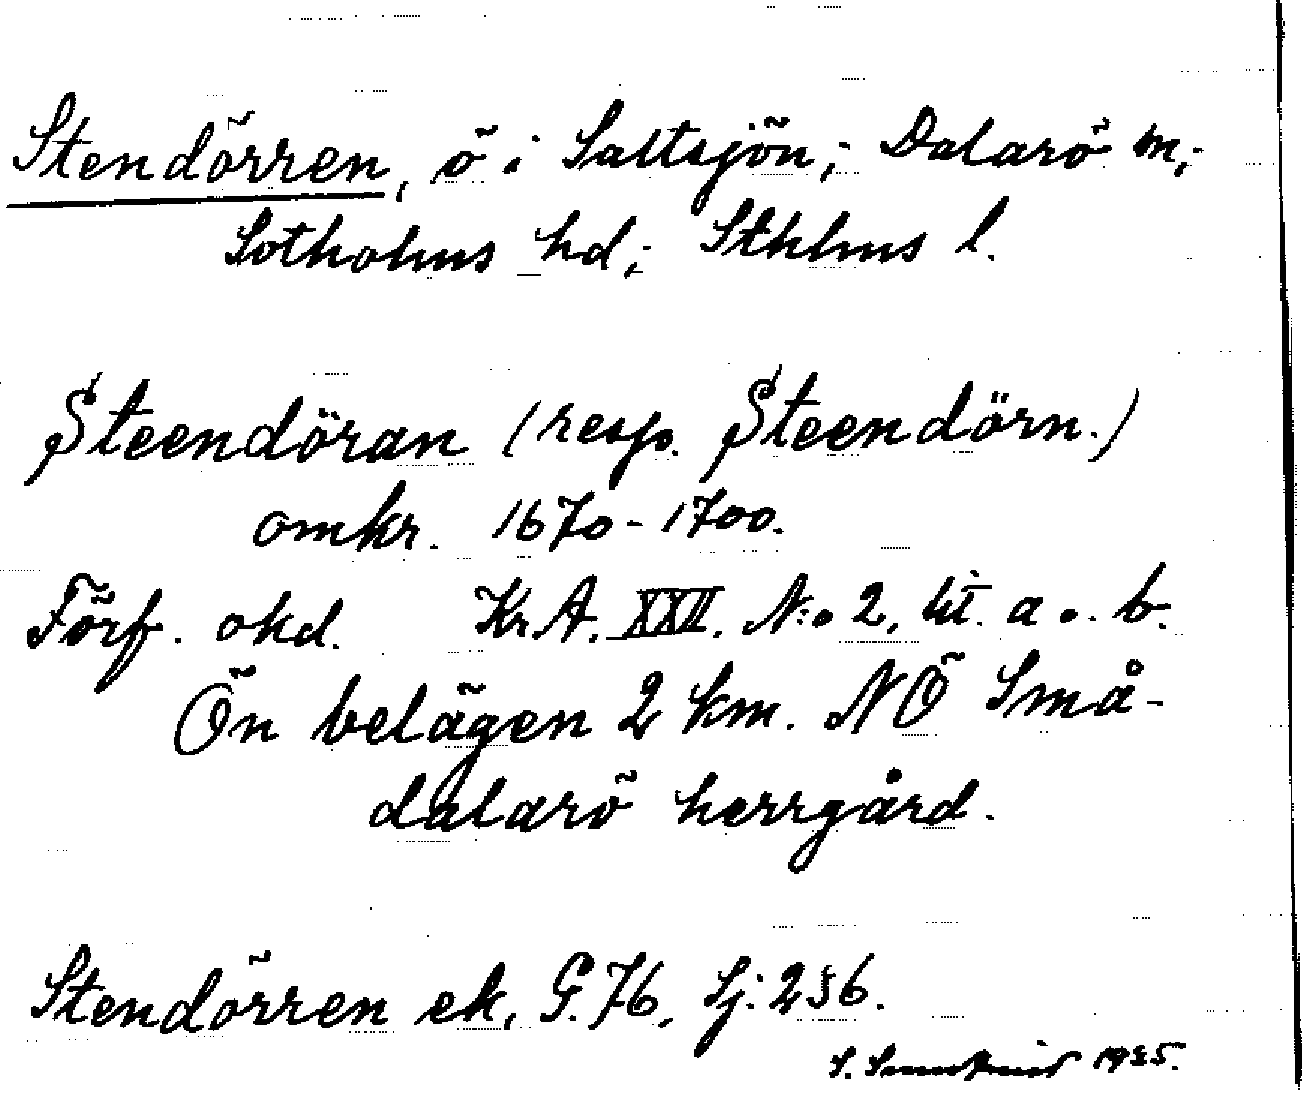 Stendörren, ö i Saltsjön; Dalarö sn;
Sotholms hd; Sthlms l.
Steendöran (resp. Steendörn.)
omkr. 1670-1700.
Förf. okd. KrA. XXII. N:o 2, lit. a o. b.
Ön belägen 2 km. NÖ Små-
dalarö herrgård.
Stendörren ek, G. 76, Sj: 256.
S. 1935.